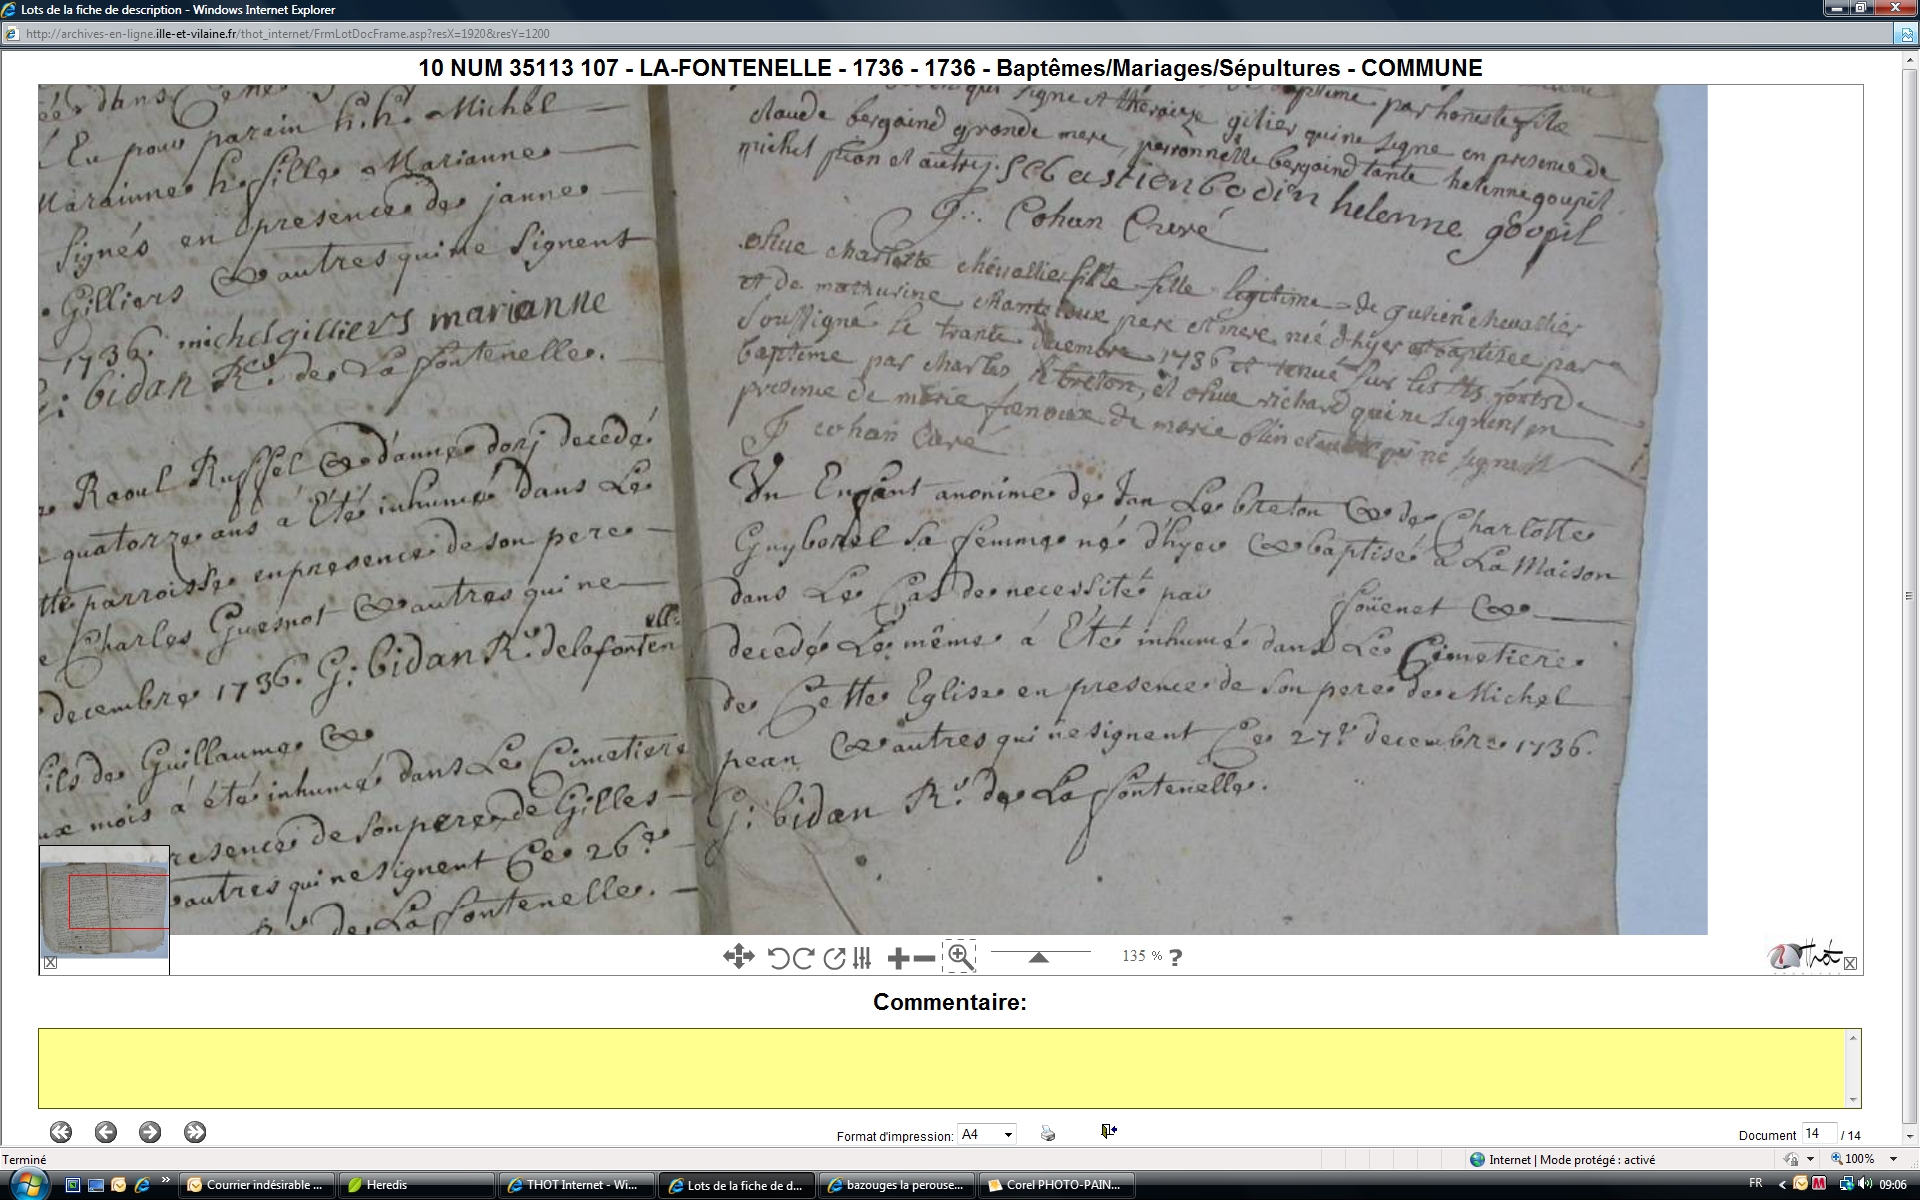 Lots de la fiche de description - Windows Internet Explorer
http://archives-en-ligne.ille-et-vilaine.fr/thot_internet/FrmLotDocFrame.asp?resX=1920&resY=1200
10 NUM 35113 107 - LA-FONTENELLE - 1736 - 1736 - Baptêmes/Mariages/Sépultures - COMMUNE
Eu pour parain h.h. Michel
Marainne h. fille Marianne
signés en presence de janne
Gilliers & autres qui ne signent
1736. michel gilliers marianne
G: bidan Rr. de La fontenelle.
Raoul Russel & d'anne dorj decedé
quatorze ans á Eté inhumé dans Le
parroisse en presence de son pere
Charles Guesnot & autres qui ne
decembre 1736. G: bidan Rr. de la fontenelle
fils de Guillaume &
mois á été inhumé dans Le Cimetiere
resence de son pere de Gilles
autres qui ne signent Ce 26e
de La fontenelle.
signe et gilier qui ne signe en presence de
claude bergaind grande mere, perronnelle bergaind tante helenne goupil
michel et autres. Sebastien bodin helenne goupil
J. Cohan Curé
olive charlotte chevallier fille fille legitime de chevallier
et de mathurine chanteloux pere et mere né d'hyer et baptisee par
soussigné le trante decembre 1736 et tenue sur les fonts de
baptême par charles le breton, et olive richard qui ne signent en
presence de marie de marie qui ne signent
J cohan Curé
Un Enfant anonime de Jan Le breton & de Charlotte
Guyborel sa femme né d'hyer & baptisé á La Maison
dans Le Cas de necessité par foüenet &
decedé Le même á Eté inhumé dans Le Cimetiere
de Cette Eglise en presence de son pere de Michel
pean & autres qui ne signent Ce 27e decembre 1736.
G: bidan Rr. de La fontenelle.
135 % ?
Thot
Commentaire:
Format d'impression: A4
Document 14 / 14
Terminé
Internet | Mode protégé : activé
100%
Courrier indésirable ...
Heredis
THOT Internet - Wi...
Lots de la fiche de d...
bazouges la perouse...
Corel PHOTO-PAIN...
FR
09:06